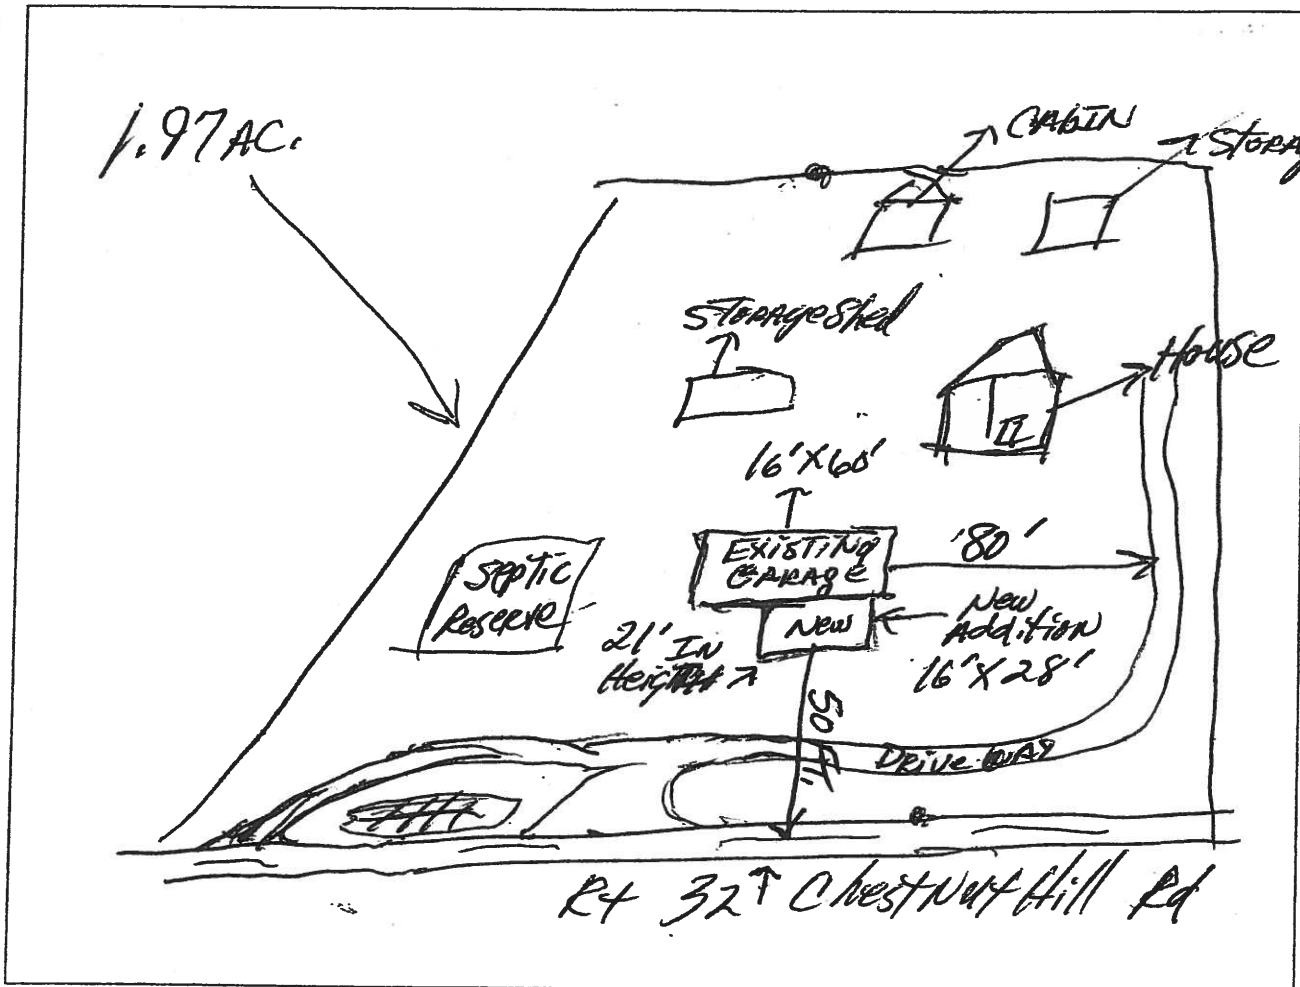 1.97 AC.
CABIN
STORAG
STORAGE Shed
House
16' X 60'
EXISTING
GARAGE
80'
Septic
Reserve
New
New
Addition
16' X 28'
21' IN
Height
50 FT.
DRIVEWAY
Rt 32 Chestnut Hill Rd